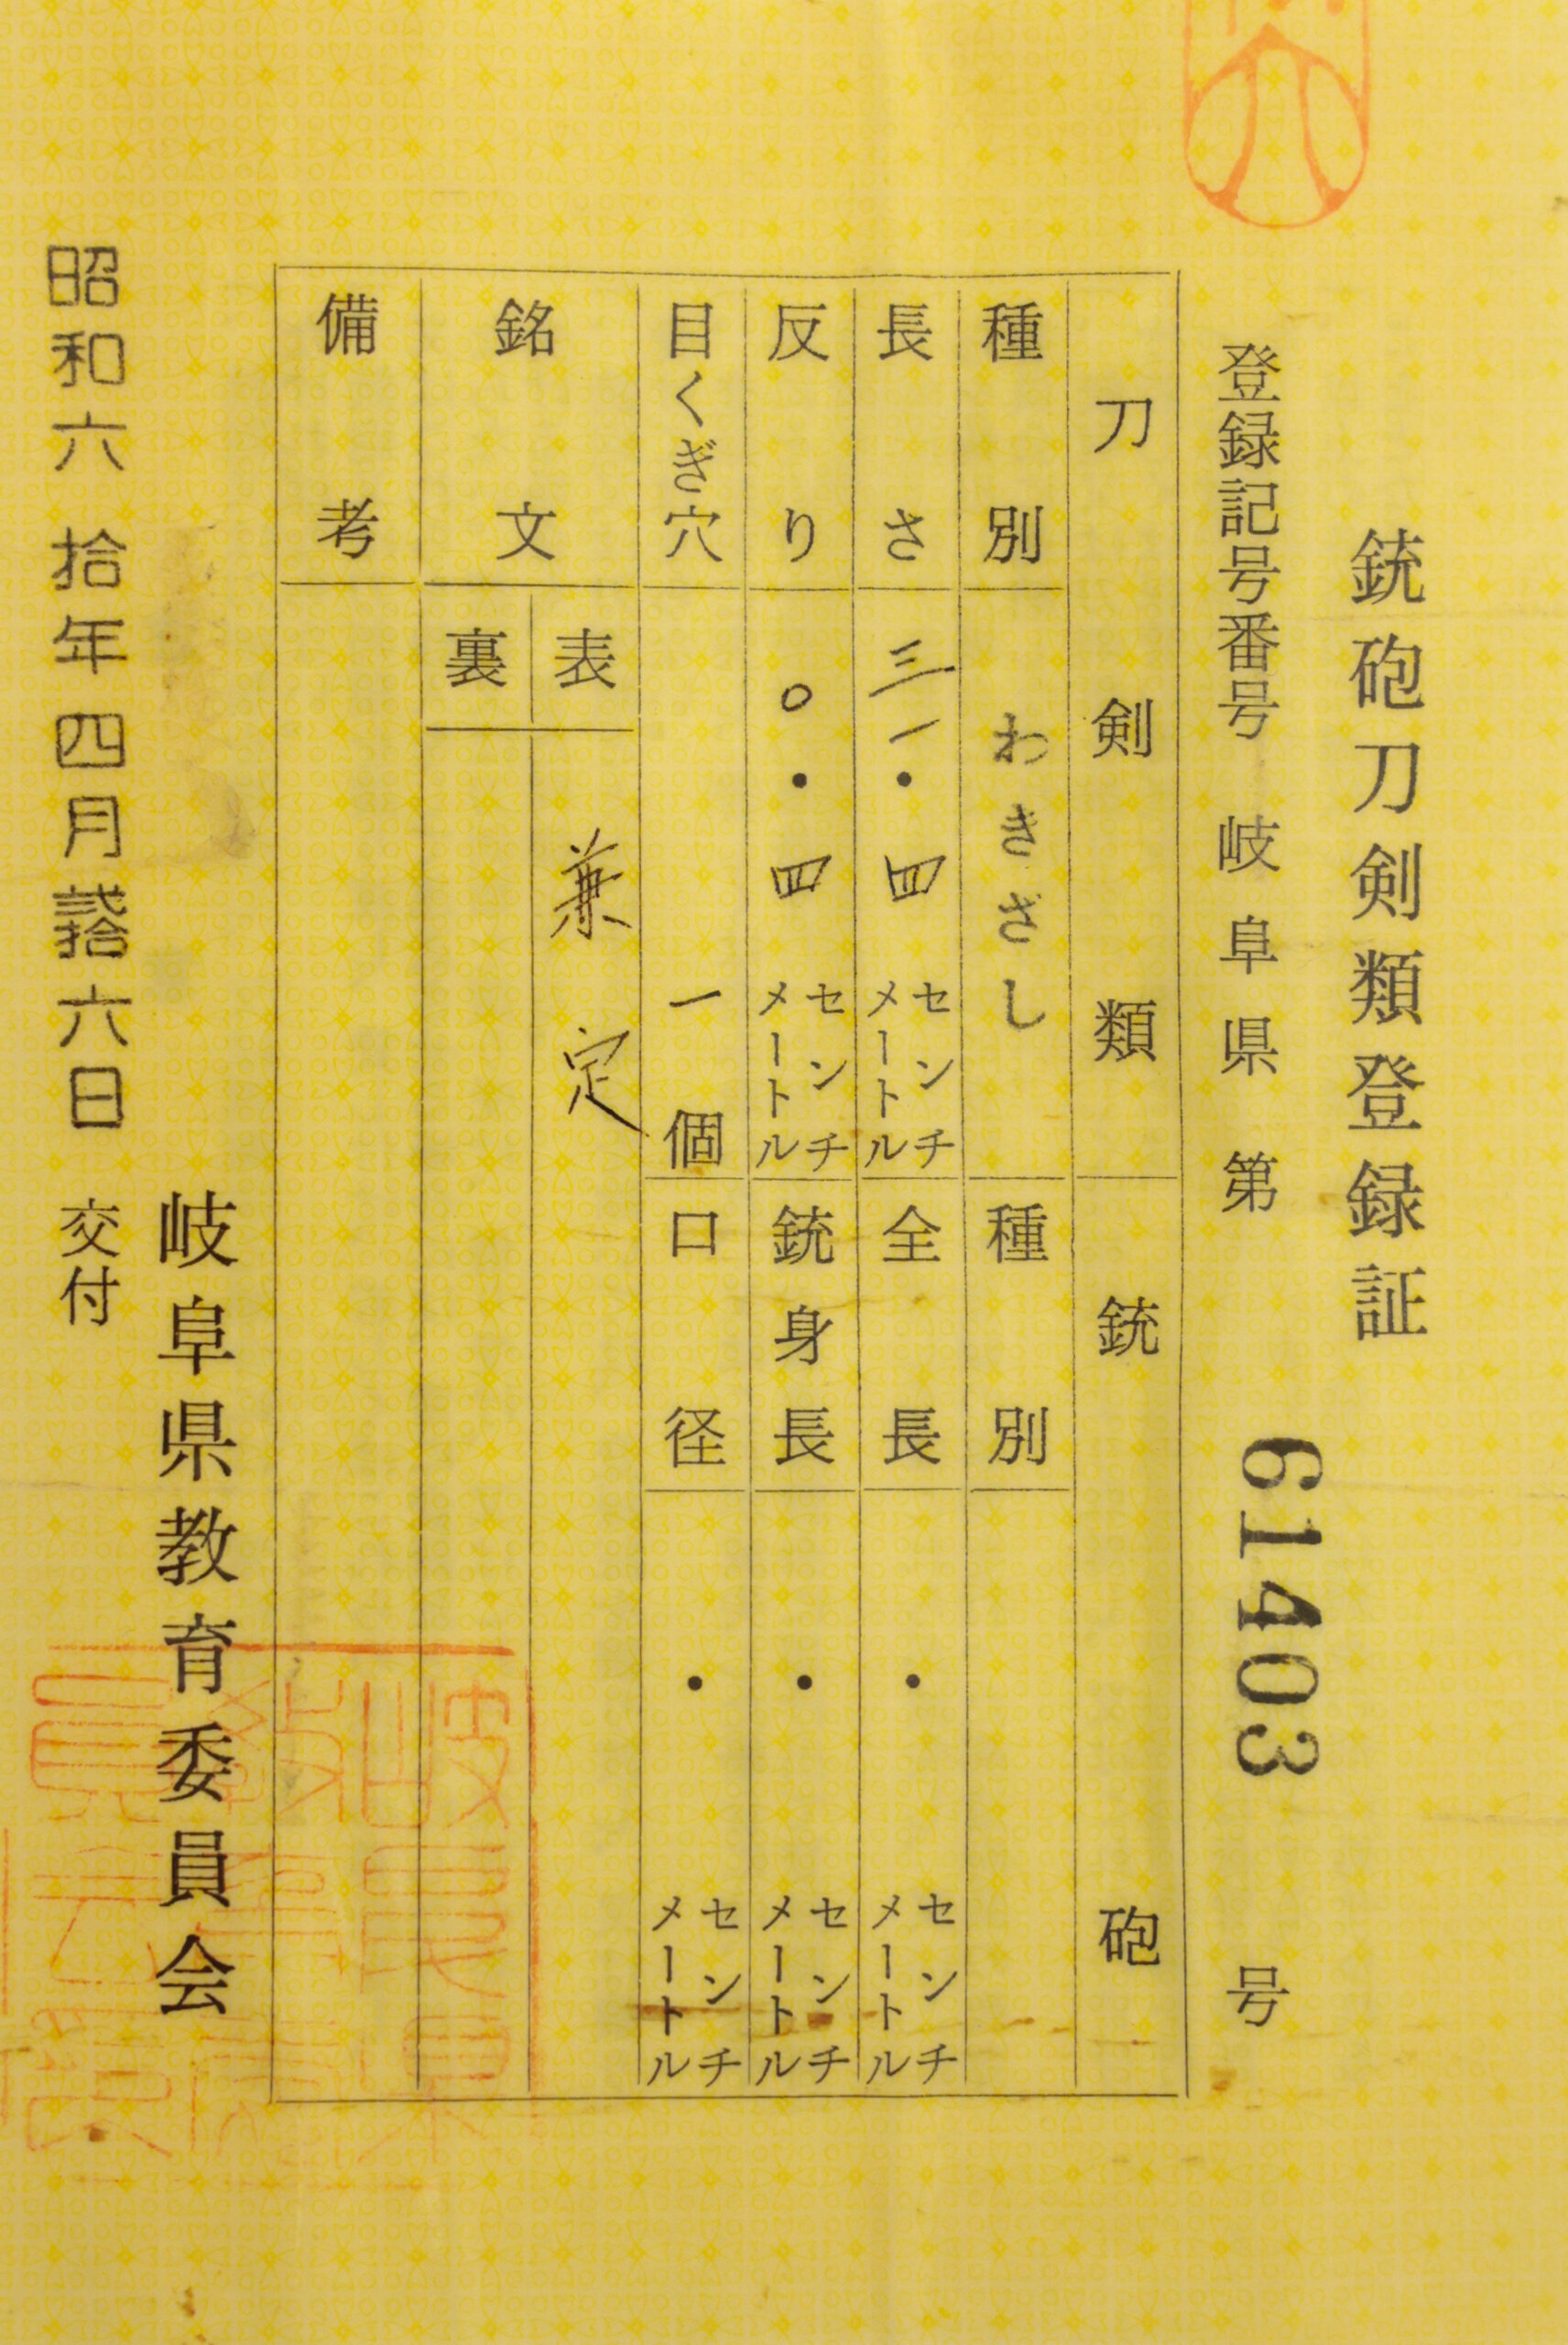 銃砲刀剣類登録証
登録記号番号 岐阜県 第 61403 号
刀剣類
銃砲
種別
わきざし
種別
長さ
三一・四 センチメートル
全長
・ センチメートル
反り
〇・四 センチメートル
銃身長
・ センチメートル
目くぎ穴
一個
口径
・ センチメートル
銘文
表
兼定
裏
備考
岐阜県教育委員会
昭和六拾年四月弐拾六日 交付